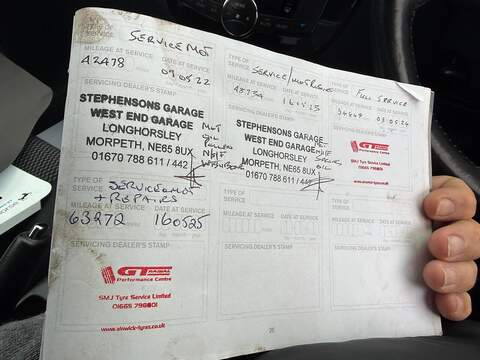 TYPE OF SERVICE
SERVICE MOT
MILEAGE AT SERVICE DATE AT SERVICE
42478 09.05.22
SERVICING DEALER'S STAMP
STEPHENSONS GARAGE
WEST END GARAGE
LONGHORSLEY
MORPETH, NE65 8UX
01670 788 611 / 442
MOT
OIL
POLLEN
TYPE OF SERVICE
MILEAGE AT SERVICE DATE AT SERVICE
SERVICING DEALER'S STAMP
STEPHENSONS GARAGE
WEST END GARAGE
LONGHORSLEY
MORPETH, NE65 8UX
01670 788 611 / 442
OIL
TYPE OF SERVICE
FULL SERVICE
MILEAGE AT SERVICE DATE AT SERVICE
03.05.24
SERVICING DEALER'S STAMP
GT RADIAL
Performance Centre
SMJ Tyre Service Limited
01665 798801
www.alnwick-tyres.co.uk
TYPE OF SERVICE
SERVICE MOT
+ REPAIRS
MILEAGE AT SERVICE DATE AT SERVICE
63272 160525
SERVICING DEALER'S STAMP
GT RADIAL
Performance Centre
SMJ Tyre Service Limited
01665 798801
www.alnwick-tyres.co.uk
TYPE OF SERVICE
MILEAGE AT SERVICE DATE AT SERVICE
SERVICING DEALER'S STAMP
TYPE OF SERVICE
MILEAGE AT SERVICE DATE AT SERVICE
SERVICING DEALER'S STAMP